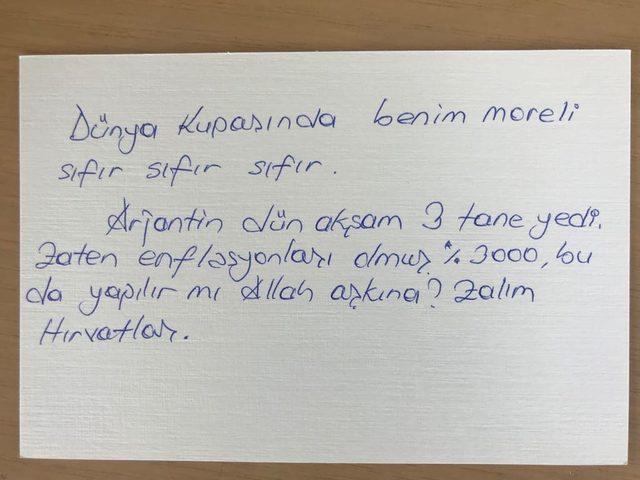 Dünya Kupasında benim moreli
sıfır sıfır sıfır.
Arjantin dün akşam 3 tane yedi.
Zaten enflasyonları olmuş %3000, bu
da yapılır mı Allah aşkına? Zalım
Hırvatlar.